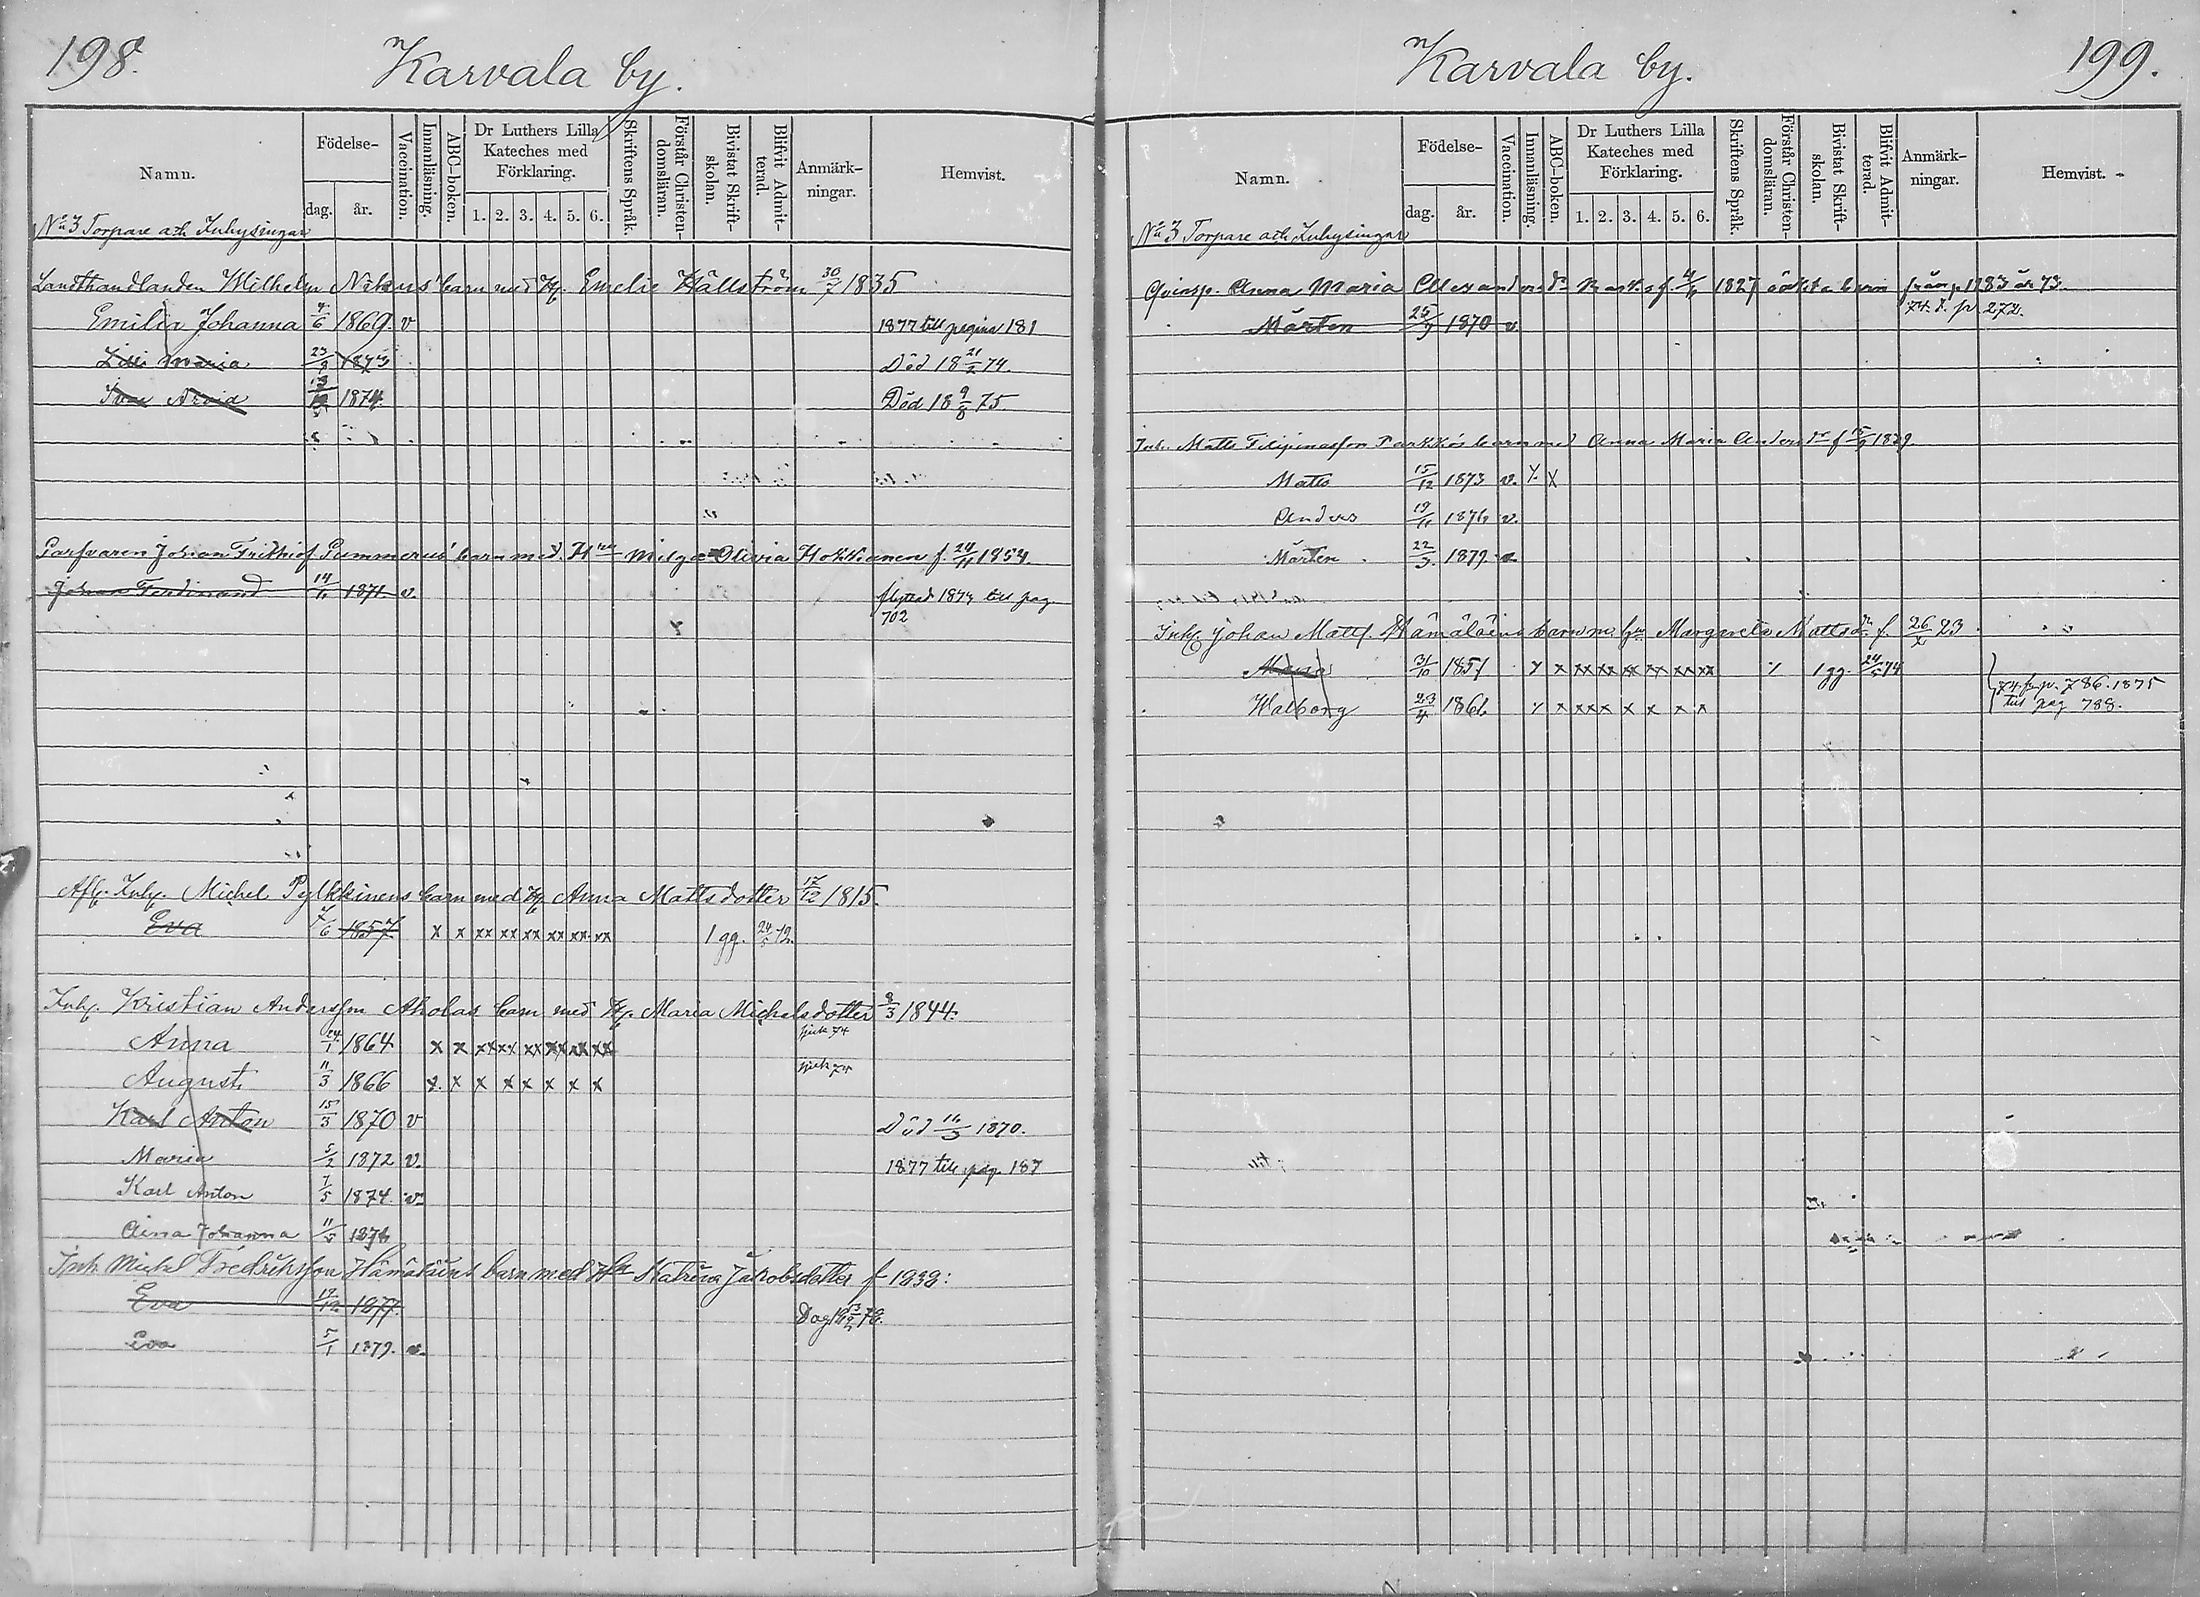 198.
Karvala by.
Namn.
Födelse-
dag.
år.
Vaccination.
Innanläsning.
ABC-boken.
Dr Luthers Lilla
Kateches med
Förklaring.
1. 2. 3. 4. 5. 6.
Skriftens Språk.
Förstår Christen-
domsläran.
Bivistat Skrift-
skolan.
Blifvit Admit-
terad.
Anmärk-
ningar.
Hemvist.
No 3 Torpare och Inhysingar
Landthandlanden Wilhelm barn med H. Emelie Hällström 30/7 1835
Emilia Johanna 4/6 1869 v 1877 till pagina 181
Lilli Maria 23/9 1873 Död 18 21/2 74.
Ivar Arvid 1874. Död 18 9/8 75.
Garfvaren Johan Frithiof Pummerus' barn med Olivia Hokkanen f. 24/11 1854.
Johan Ferdinand 14/11 1871. v. flyttad 1874 till pag
702
Afl. Inh. Michel Pylkkinens barn med H. Anna Mattsdotter 17/12 1815.
Eva 7/6 1857 x x xx xx xx xx xx xx 1 gg. 24/5 72.
Inh. Kristian Andersson Aholas barn med H. Maria Michelsdotter 8/3 1844.
Anna 1864 x x xx xx xx xx xx xx sjuk 74
August 11/3 1866 x. x x x x x x x sjuk 74
Karl Anton 15/3 1870 v Död 1870.
Maria 5/2 1872 v. 1877 till pag. 187
Karl Anton 7/5 1874 v.
Aina Johanna 11/5 1876
Inh. Michel Fredriksson barn med Katrina Jakobsdotter f 1838:
Eva 1877.
Eva 5/1 1879. v.
Karvala by.
199.
Namn.
Födelse-
dag.
år.
Vaccination.
Innanläsning.
ABC-boken.
Dr Luthers Lilla
Kateches med
Förklaring.
1. 2. 3. 4. 5. 6.
Skriftens Språk.
Förstår Christen-
domsläran.
Bivistat Skrift-
skolan.
Blifvit Admit-
terad.
Anmärk-
ningar.
Hemvist.
No 3 Torpare och Inhysingar
Qvinsp. Anna Maria 1827 oäkta barn från p. 1183 år 73.
74. t. p. 272.
Mårten 25/9 1870 v.
Inh. Matts Filipusson barn med Anna Maria Anders dr f 15/9 1839.
Matts 15/12 1873 v. x x
Anders 19/11 1876 v.
Mårten 22/3. 1879. v.
Inh. Johan Matts. Hämäläins barn m. hu Margareta Mattsdr f. 26/2 23
Maria 31/10 1851 x x xx xx xx xx xx xx x 1 gg. 24/5 74
Walborg 23/4 1861. x x xx x x x x x
74 fr. p. 786. 1875
till pag 788.